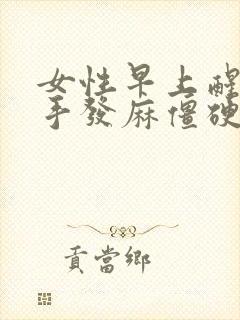 女性早上醒
手發麻僵硬
貢當鄉